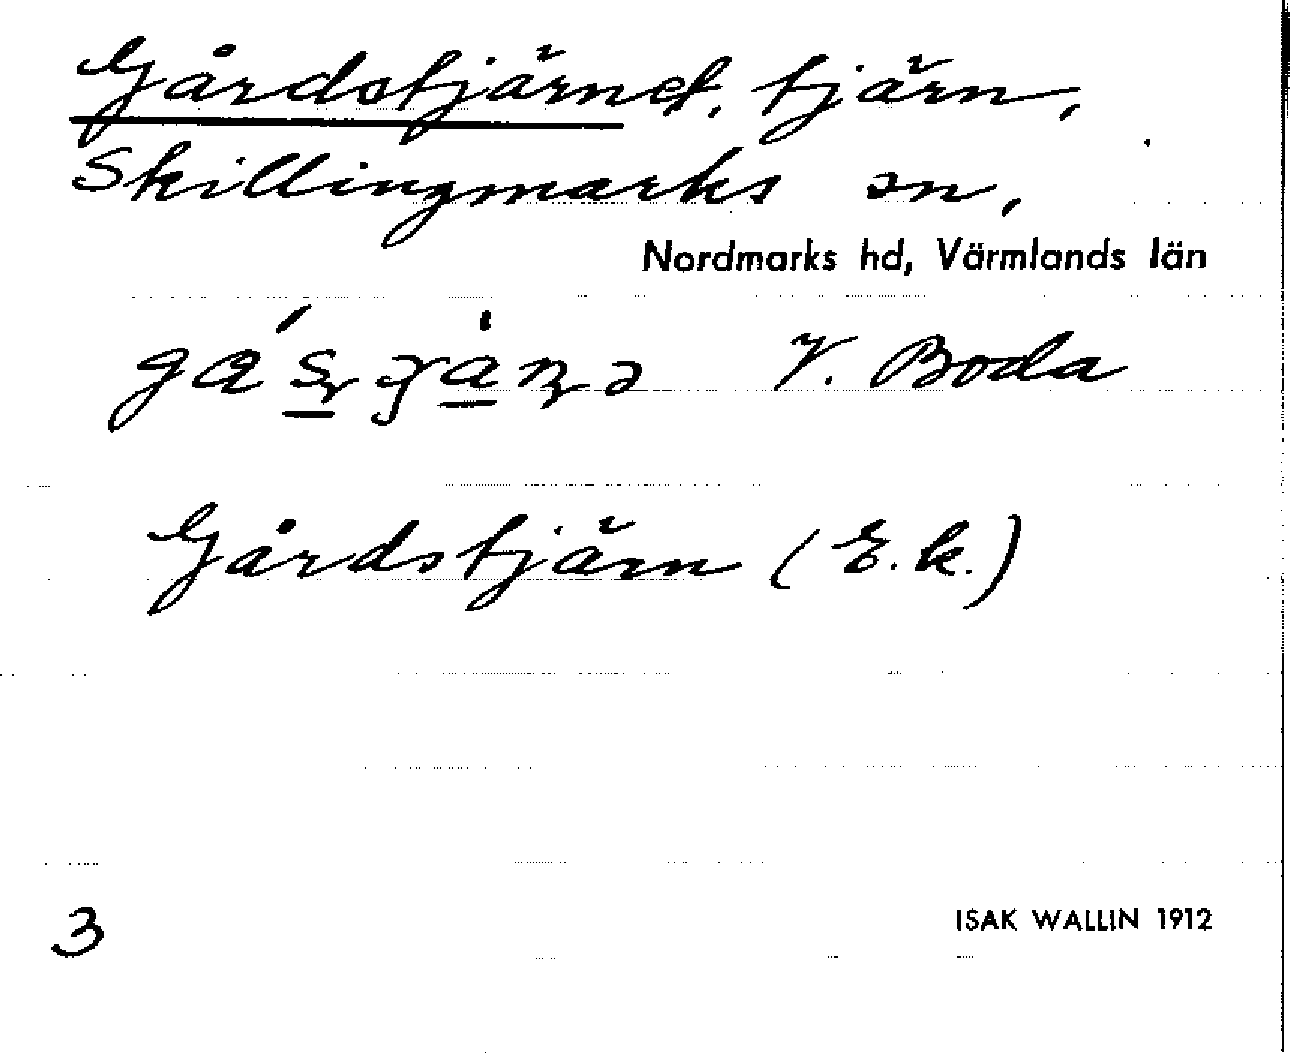 Gårdstjärnet, tjärn,
Skillingmarks sn,
Nordmarks hd, Värmlands län
V. Boda
Gårdstjärn (E.k.)
3
ISAK WALLIN 1912